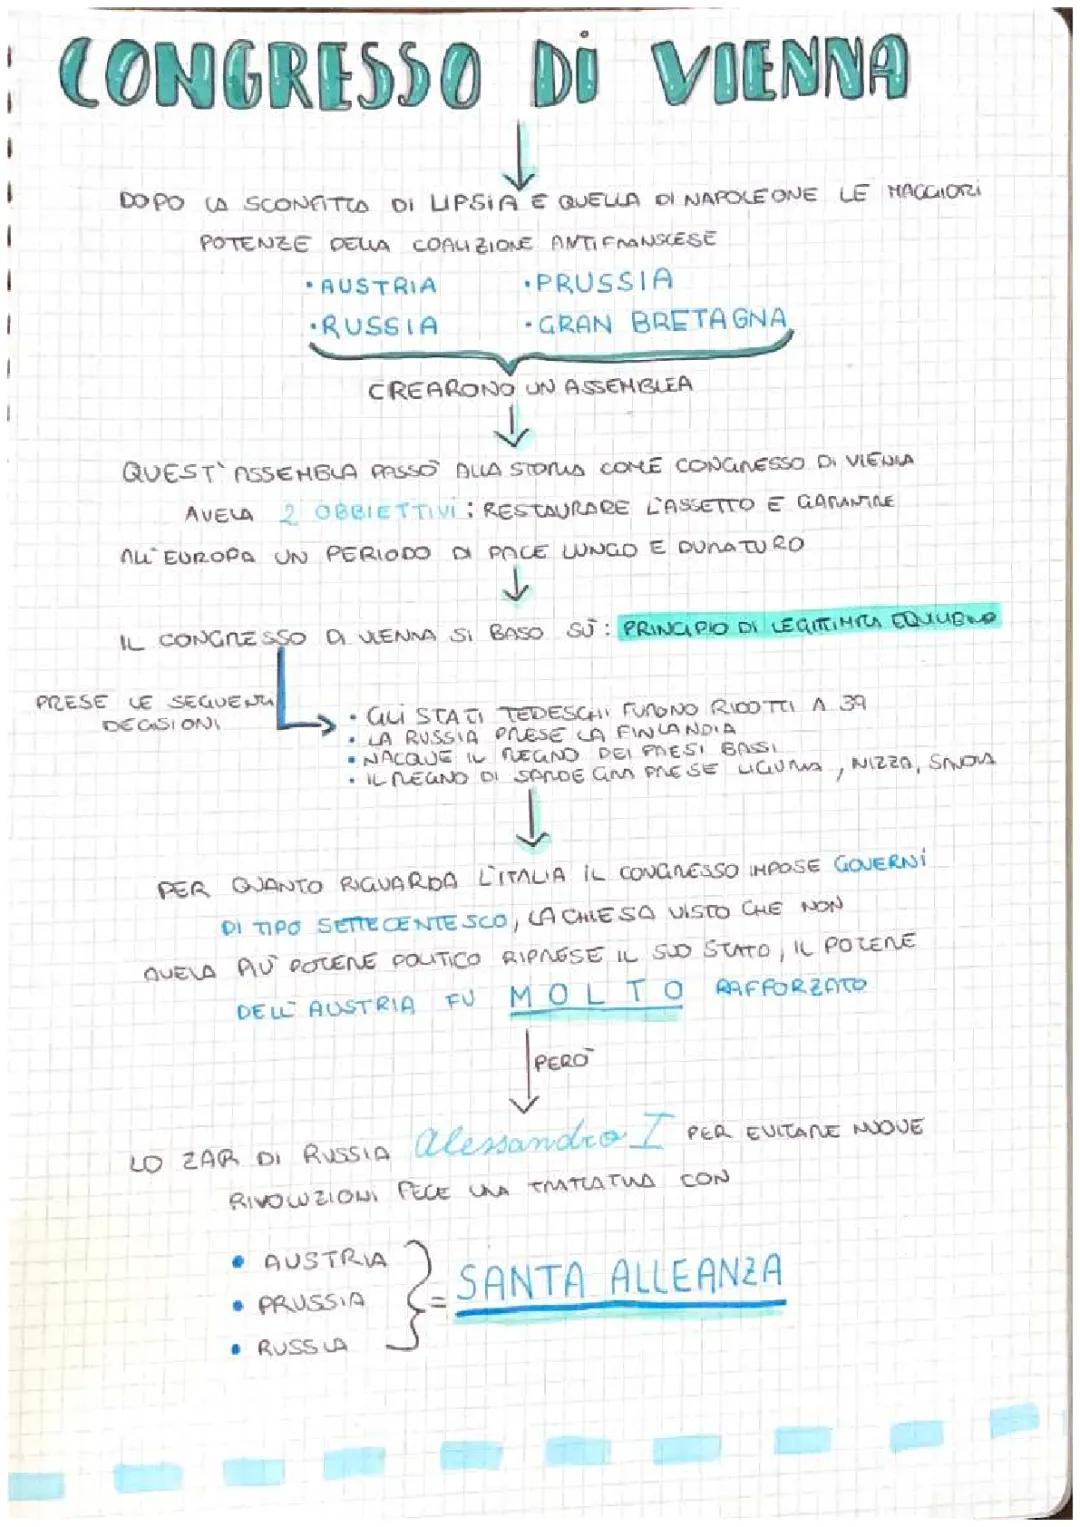 CONGRESSO Di VIENNA
DOPO LA SCONFITTA DI LIPSIA E QUELLA DI NAPOLEONE LE MAGGIORI
POTENZE DELLA COALIZIONE ANTIFRANSCESE
• AUSTRIA • PRUSSIA
• RUSSIA • GRAN BRETAGNA
CREARONO UN ASSEMBLEA
QUEST' ASSEMBLA PASSO' ALLA STORIA COME CONGRESSO DI VIENNA
AVEVA 2 OBBIETTIVI : RESTAURARE L'ASSETTO E GARANTIRE
ALL' EUROPA UN PERIODO DI PACE LUNGO E DURATURO
IL CONGRESSO DI VIENNA SI BASO SÙ : PRINCIPIO DI LEGITTIMITÀ EQUILIBRIO
PRESE LE SEGUENTI
DECISIONI
• GLI STATI TEDESCHI FURONO RIDOTTI A 39
• LA RUSSIA PRESE LA FINLANDIA
• NACQUE IL REGNO DEI PAESI BASSI
• IL REGNO DI SARDEGNA PRESE LIGURIA , NIZZA, SAVOIA
PER QUANTO RIGUARDA L'ITALIA IL CONGRESSO IMPOSE GOVERNI
DI TIPO SETTECENTESCO, LA CHIESA VISTO CHE NON
AVEVA PIU' POTERE POLITICO RIPRESE IL SUO STATO, IL POTERE
DELL' AUSTRIA FU MOLTO RAFFORZATO
PERO'
LO ZAR DI RUSSIA Alessandro I PER EVITARE NUOVE
RIVOLUZIONI FECE UNA TRATTATIVA CON
• AUSTRIA
• PRUSSIA = SANTA ALLEANZA
• RUSSIA